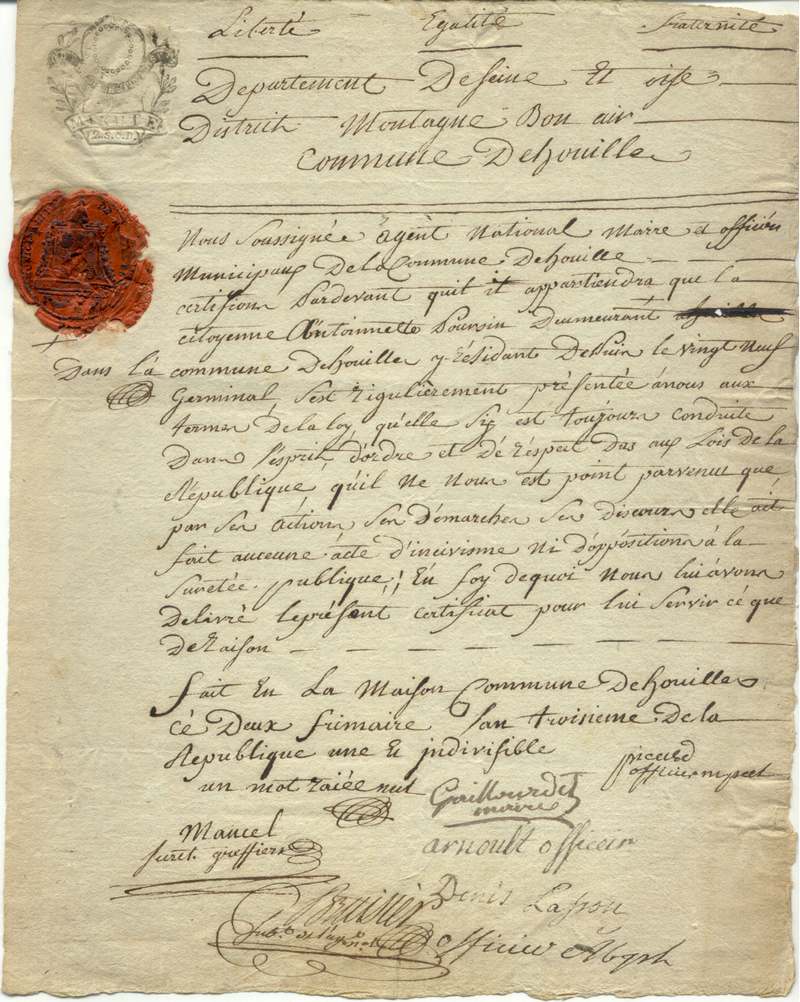 Liberté Egalité fraternité
Departement De seine Et oise
District Montagne Bon air
Commune De houille
Nous soussignée agent National Maire et officier
Municipaux De la Commune De houille
certifions Pardevant quil it appartiendra que la
citoyenne Antoinnette Poursin Deumeurant
Dans la commune De houille y résidant Depuis le vingt neuf
Germinal, sest régulièrement présentée à nous aux
termes de la loy, qu'elle sy est toujours conduite
Dans l'esprit d'ordre et de réspect Das aux Lois de la
République, quil ne nous est point parvenus que
par ses actions ses Démarches ses Discours elle ait
fait auceune acte d'incivisme ni d'oppositions à la
suretée publique; En foy dequoi Nous lui avons
Délivré le présent certificat pour lui servir cé que
De raison
fait En La Maison Commune De houille
cé Deux frimaire l'an troisieme De la
République une Et indivisible
un mot raiée nul
picard
officier
Gaillourdet
maire
Mancel
secret. greffier
arnoult officier
Denis Lasson
officier